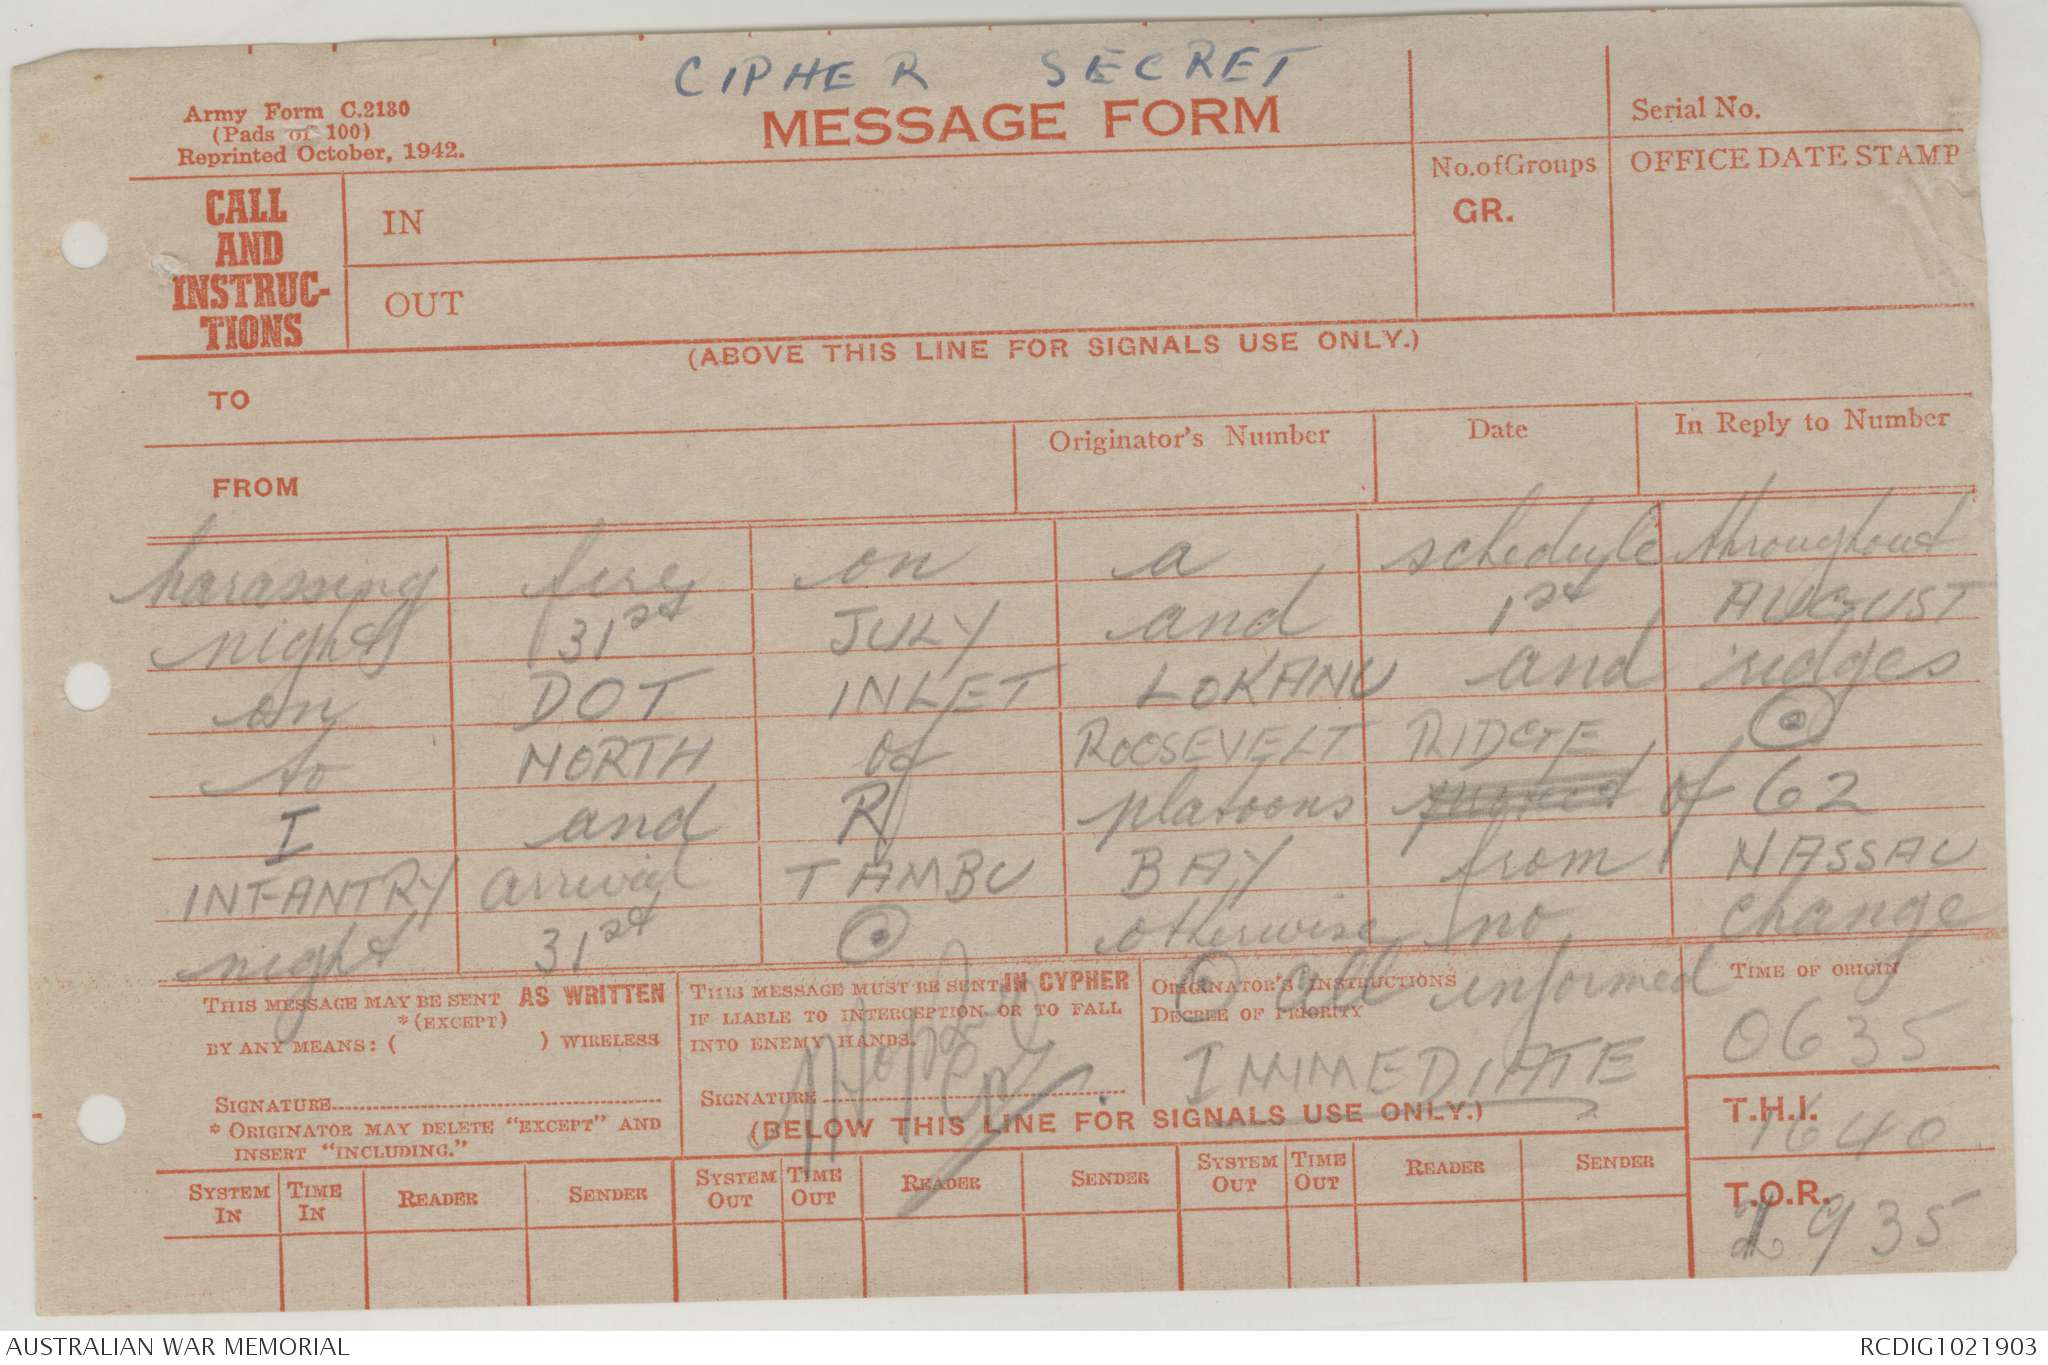 CIPHER SECRET
Army Form C.2130
(Pads of 100)
Reprinted October, 1942.
MESSAGE FORM
Serial No.
No. of Groups
GR.
OFFICE DATE STAMP
CALL
AND
INSTRUC-
TIONS
IN
OUT
(ABOVE THIS LINE FOR SIGNALS USE ONLY.)
TO
FROM
Originator's Number
Date
In Reply to Number
harassing fire on a schedule throughout
night 31st JULY and 1st AUGUST
on DOT INLET LOKANU and ridges
to NORTH of ROOSEVELT RIDGE ⊙
I and R platoons of 62
INFANTRY arrived TAMBU BAY from NASSAU
night 31st ⊙ otherwise no change
⊙ all informed
THIS MESSAGE MAY BE SENT AS WRITTEN
*(EXCEPT)
BY ANY MEANS: ( ) WIRELESS
SIGNATURE
* ORIGINATOR MAY DELETE "EXCEPT" AND
INSERT "INCLUDING."
THIS MESSAGE MUST BE SENT IN CYPHER
IF LIABLE TO INTERCEPTION OR TO FALL
INTO ENEMY HANDS.
SIGNATURE
ORIGINATOR'S INSTRUCTIONS
DEGREE OF PRIORITY
IMMEDIATE
TIME OF ORIGIN
0635
T.H.I.
1640
T.O.R.
1935
(BELOW THIS LINE FOR SIGNALS USE ONLY.)
SYSTEM IN
TIME IN
READER
SENDER
SYSTEM OUT
TIME OUT
READER
SENDER
SYSTEM OUT
TIME OUT
READER
SENDER
AUSTRALIAN WAR MEMORIAL
RCDIG1021903